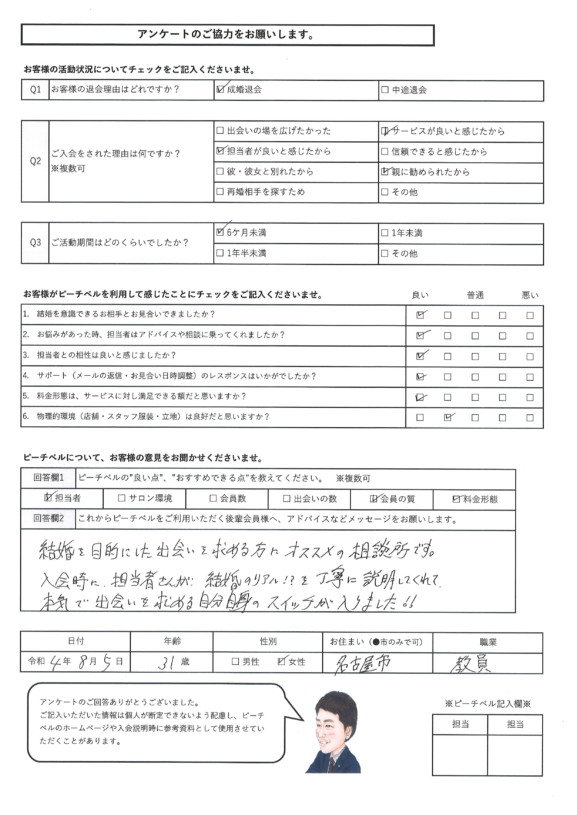 アンケートのご協力をお願いします。
お客様の活動状況についてチェックをご記入くださいませ。
Q1 お客様の退会理由はどれですか？ ☑成婚退会 □中途退会
Q2 ご入会をされた理由は何ですか？ ※複数可
□出会いの場を広げたかった ☑サービスが良いと感じたから
☑担当者が良いと感じたから □信頼できると感じたから
□彼・彼女と別れたから ☑親に勧められたから
□再婚相手を探すため □その他
Q3 ご活動期間はどのくらいでしたか？
☑6ケ月未満 □1年未満
□1年半未満 □その他
お客様がピーチベルを利用して感じたことにチェックをご記入くださいませ。 良い 普通 悪い
1. 結婚を意識できるお相手とお見合いできましたか？ ☑ □ □ □ □
2. お悩みがあった時、担当者はアドバイスや相談に乗ってくれましたか？ ☑ □ □ □ □
3. 担当者との相性は良いと感じましたか？ ☑ □ □ □ □
4. サポート（メールの返信・お見合い日時調整）のレスポンスはいかがでしたか？ ☑ □ □ □ □
5. 料金形態は、サービスに対し満足できる額だと思いますか？ ☑ □ □ □ □
6. 物理的環境（店舗・スタッフ服装・立地）は良好だと思いますか？ □ ☑ □ □ □
ピーチベルについて、お客様の意見をお聞かせくださいませ。
回答欄1 ピーチベルの"良い点"、"おすすめできる点"を教えてください。 ※複数可
☑担当者 □サロン環境 □会員数 □出会いの数 ☑会員の質 ☑料金形態
回答欄2 これからピーチベルをご利用いただく後輩会員様へ、アドバイスなどメッセージをお願いします。
結婚を目的にした出会いを求める方にオススメの相談所です。
入会時に、担当者さんが、結婚のリアル!?を丁寧に説明してくれて、
本気で出会いを求める自分自身のスイッチが入りました!!
日付 年齢 性別 お住まい（●市のみで可） 職業
令和4年8月5日 31歳 □男性 ☑女性 名古屋市 教員
アンケートのご回答ありがとうございました。
ご記入いただいた情報は個人が断定できないよう配慮し、ピーチ
ベルのホームページや入会説明時に参考資料として使用させてい
ただくことがあります。
※ピーチベル記入欄※
担当 担当